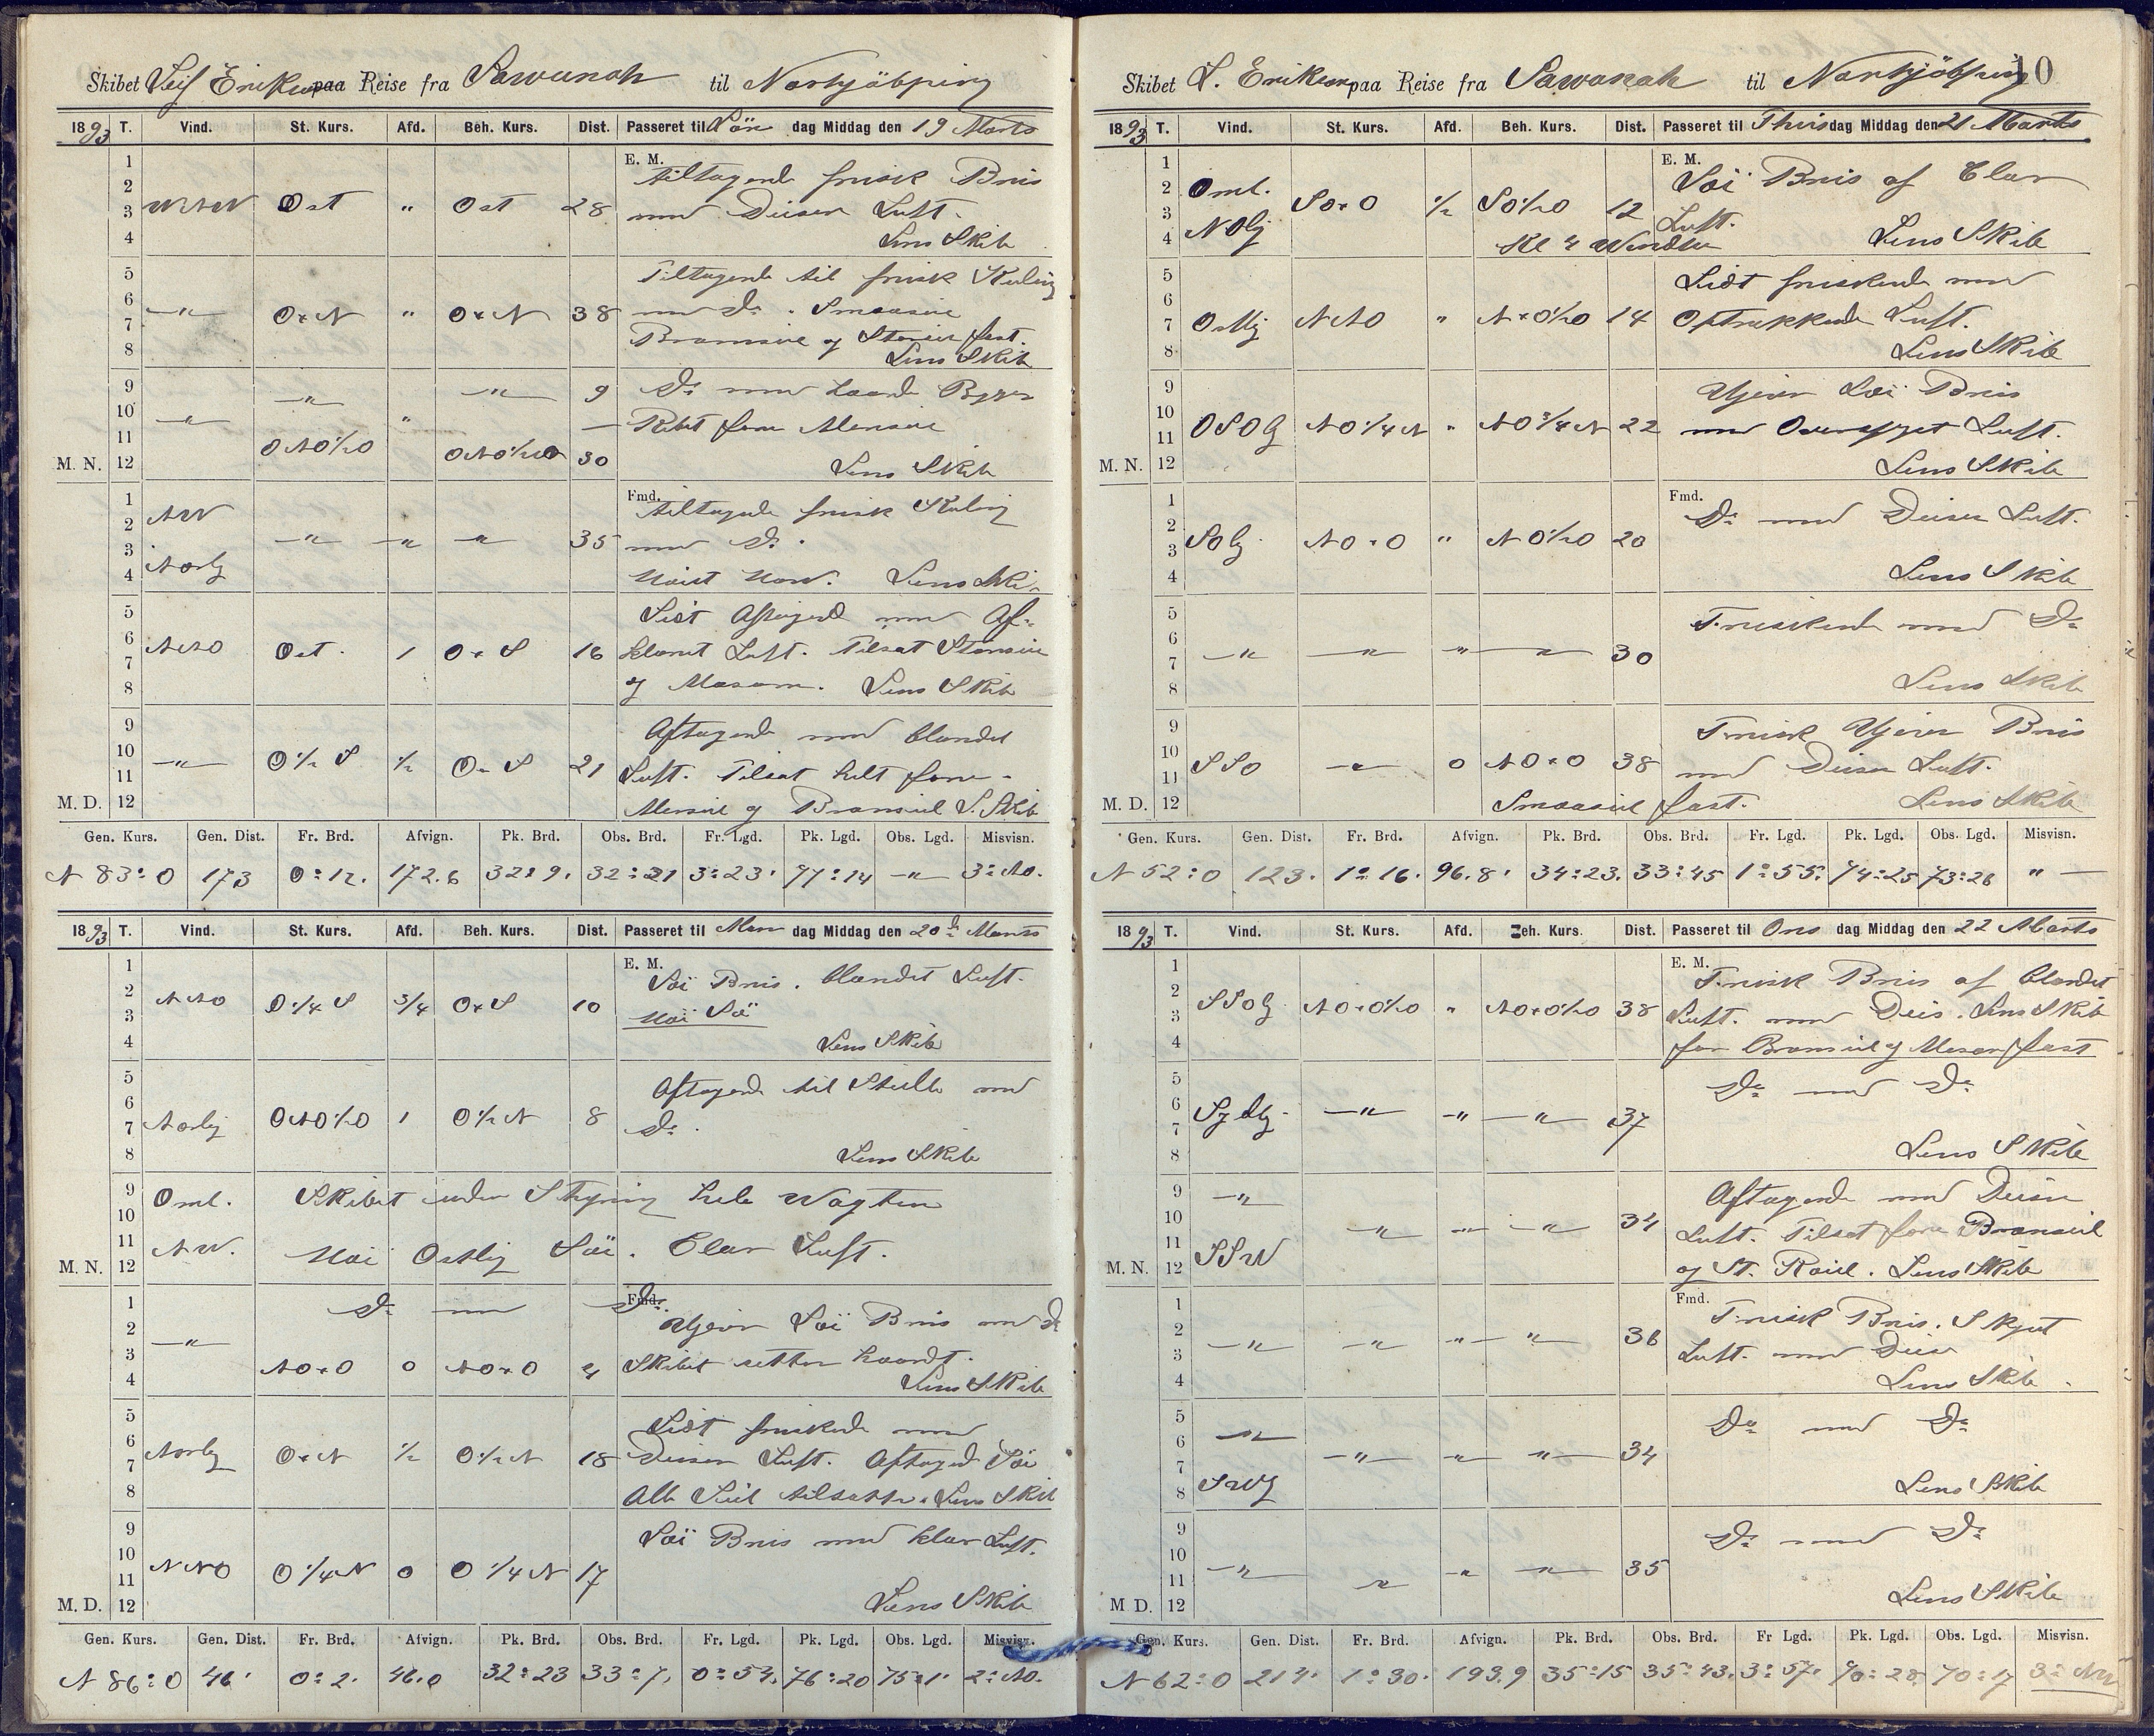 Skibet Leif Erikson paa Reise fra Sawanah til Norkjöbping
1893 T. Vind. St. Kurs. Afd. Beh. Kurs. Dist. Passeret til Sön dag Middag den 19 Marts
1 E. M. tiltagende frisk Bris
2
3 WNW Ost „ Ost 28 med Diisen Luft.
4 Lens Skib
5 Tiltagende til frisk Kuling
6 —„— O x N „ O x N 38 med Do. Smaaseil
7 Bramseil og Storseil fast.
8 Lens Skib
9 —„— —„— 9 Do med haarde Byger
10 —„— „ — Rebet forre Mersseil
11 ONO½O ONO½O 30
M. N. 12 Lens Skib
1 Fmd. tiltagende frisk Kuling
2 NW —„— —„— —„— 35 med Do.
3
4 Norlig Lens Ski
5 Lidt Aftagend med Af-
6 NNO Ost. 1 O x S 16 klaret Luft. Tilsat Storseil
7
8 og Mesan. Lens Skib
9 Aftagende med blandet
10 —„— O½S ½ O x S 21 Luft. Tilsat helt forre
11
M. D. 12 Mersseil og Bramseil L. Skib
Gen. Kurs. Gen. Dist. Fr. Brd. Afvign. Pk. Brd. Obs. Brd. Fr. Lgd. Pk. Lgd. Obs. Lgd. Misvisn.
N 83° O 173 0° 12. 172.6 32° 9. 32° 21 3° 23' 77° 14 —„— 3° NO.
1893 T. Vind. St. Kurs. Afd. Beh. Kurs. Dist. Passeret til Man dag Middag den 20de Marts
1 E. M. Löi Bris. blandet Luft.
2 NNO O¼S ¾ O x S 10 Höi Sö
3
4 Lens Skib
5 Aftagende til Stille med
6
7 Norlig ONO½O 1 O½N 8 Do.
8 Lens Skib
9 Oml. Skibet uden Styring hele Vagten
10
11 NW. Höi Ostlig Söi. Clar Luft.
M. N. 12
1 Do med Do Fmd.
2 —„— Ujevn Löi Bris med Do
3 NO x O 0 NO x O 4 Skibet sætter haardt.
4 Lens Skib
5 Lidt friskende med
6 Norlig O x N ½ O½N 18 Diisen Luft. Aftagend Söi
7
8 Alle Seil tilsatte. Lens Skib
9 Löi Bris med klar Luft.
10 NNO O¼N 0 O¼N 17
11
M. D. 12 Lens Skib
Gen. Kurs. Gen. Dist. Fr. Brd. Afvign. Pk. Brd. Obs. Brd. Fr. Lgd. Pk. Lgd. Obs. Lgd. Misvisn.
N 86° O 46' 0° 2. 46.0 32° 23 33° 7, 0° 54. 76° 20 75° 1' 2° NO.
10
Skibet L. Erikson paa Reise fra Sawanah til Norkjöbping
1893 T. Vind. St. Kurs. Afd. Beh. Kurs. Dist. Passeret til Thirsdag Middag den 21 Marts
1 E. M. Löi Bris af Clar
2 Oml. SO x O ½ SO½O 12 Luft.
3
4 NOlig Kl 4 Vendte Lens Skib
5 Lidt friskende med
6
7 Ostlig NNO „ N x O½O 14 Optrækkende Luft.
8 Lens Skib
9 Ujevn Löi Bris
10
11 OSOlg NO¼N „ NO¾N 22 med Overskyet Luft.
M. N. 12 Lens Skib
1 Fmd. Do med Diisen Luft.
2
3 SOlg NO x O „ NO½O 20
4 Lens Skib
5 Friskende med Do
6
7 —„— —„— —„— —„— 30
8 Lens Skib
9 Frisk Ujevn Bris
10 SSO —„— 0 NO x O 38 med Diisen Luft.
11
M. D. 12 Smaaseil fast. Lens Skib
Gen. Kurs. Gen. Dist. Fr. Brd. Afvign. Pk. Brd. Obs. Brd. Fr. Lgd. Pk. Lgd. Obs. Lgd. Misvisn.
N 52° O 123. 1° 16. 96.8' 34° 23. 33° 45 1° 55. 74° 25 73° 26 „ —
1893 T. Vind. St. Kurs. Afd. Beh. Kurs. Dist. Passeret til Ons dag Middag den 22 Marts
1 E. M. Frisk Bris af blandet
2 SSOlg NO x O½O „ NO x O½O 38 Luft. med Diis. Lens Skib
3
4 for Bramseil og Mesan fast
5 Do med Do
6 Sydlig —„— —„— —„— 37
7
8 Lens Skib
9 —„— Aftagende med Diisen
10 —„— —„— —„— 34 Luft. Tilsat forre Bramseil
11 SSW
M. N. 12 og St. Röil. Lens Skib
1 Fmd. Frisk Bris. Skyet
2 —„— —„— —„— —„— 36 Luft. med Diis
3
4 Lens Skib
5 Do med Do
6 —„— —„— —„— —„— 34
7
8 SWlg Lens Skib
9 Do med Do
10 —„— —„— —„— —„— 35
11
M D. 12 Lens Skib
Gen. Kurs. Gen. Dist. Fr. Brd. Afvign. Pk. Brd. Obs. Brd. Fr Lgd. Pk. Lgd. Obs. Lgd. Misvisn.
N 62° O 214. 1° 30. 193.9 35° 15 35° 43. 3° 57. 70° 28. 70° 17 3° NW